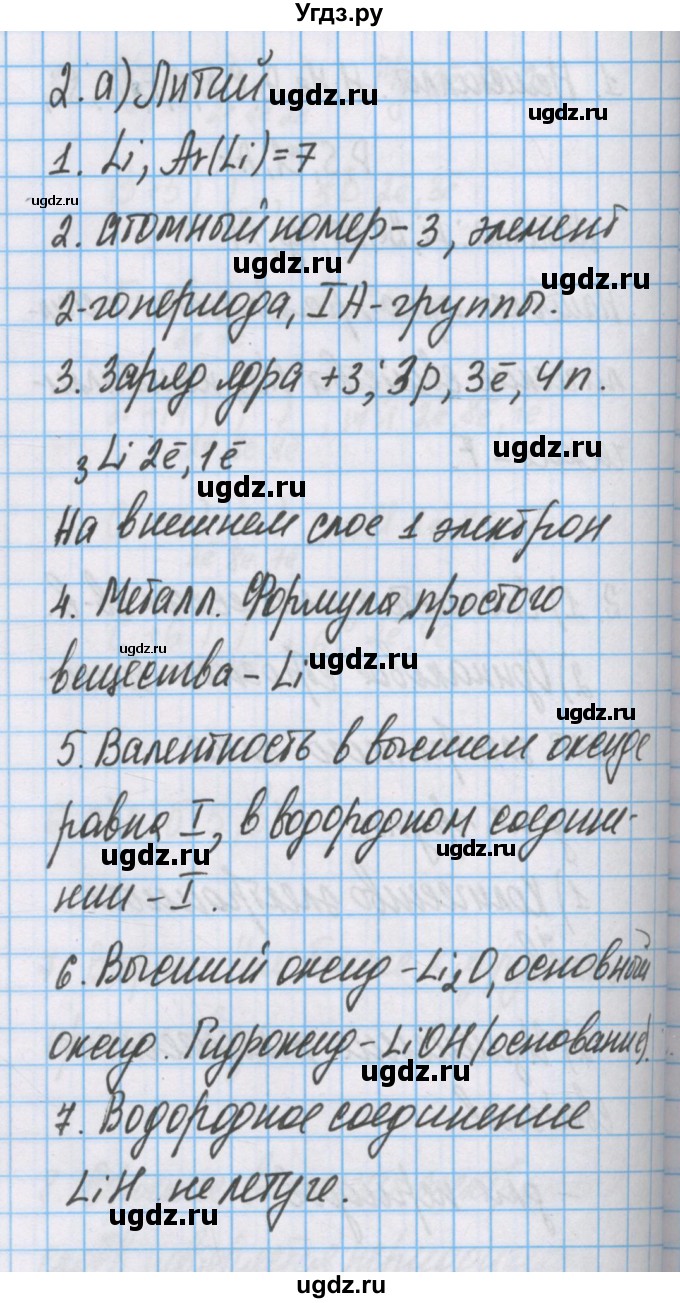 Угдз.ру
2. а) Литий
ugdz.ru
1. Li, Ar(Li)=7
ugdz.ru
ugdz.ru
2. атомный номер - 3, элемент
ugdz.ru
ugdz.ru
2-го периода, IA-группы.
3. Заряд ядра +3; 3p, 3ē, 4n.
ugdz.ru
₃Li 2ē, 1ē
ugdz.ru
На внешнем слое 1 электрон
4. Металл. Формула простого
ugdz.ru
ugdz.ru
вещества - Li
ugdz.ru
5. Валентность в высшем оксиде
равна I, в водородном соедине-
ugdz.ru
ugdz.ru
нии - I.
6. Высший оксид - Li₂O, основный
оксид. Гидроксид - LiOH (основание).
ugdz.ru
7. Водородное соединение
LiH не летуче.
ugdz.ru
ugdz.ru
ugdz.ru